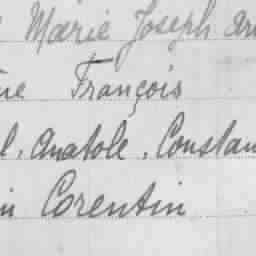 Marie Joseph
François
Anatole, Constan
Corentin